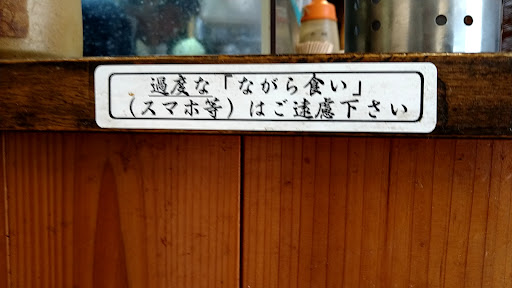 過度な「ながら食い」
（スマホ等）はご遠慮下さい